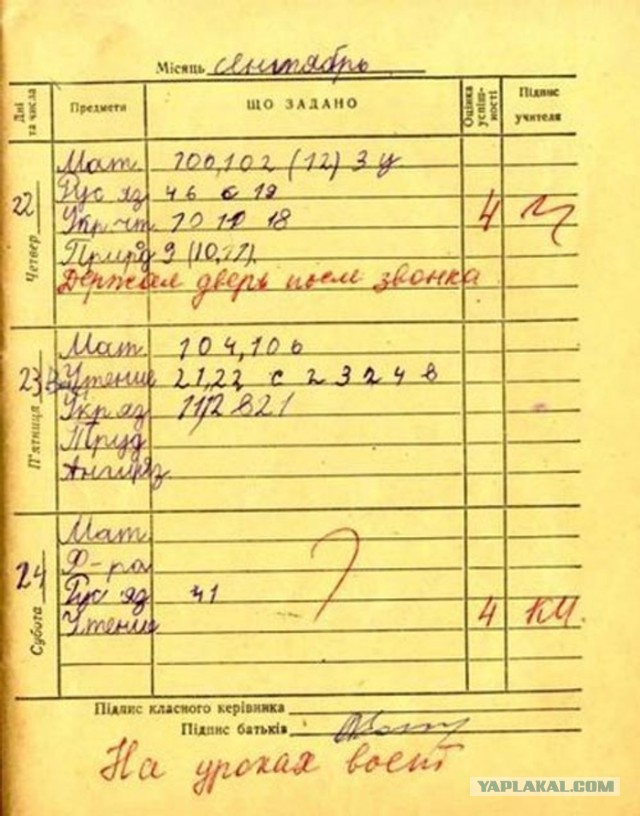 Місяць сентябрь
Дні та числа Предмети ЩО ЗАДАНО Оцінка успіш-ності Підпис учителя
22 Четвер
Мат. 100,102 (12) 3 у
Рус яз 46 с 19
Укр.чт. 10 11 18 4
Природ 9 (10,11).
Держал дверь после звонка
23 П'ятниця
Мат. 104,106
Чтение 21,22 с 23 24 в
Укр яз 112 в 21
Труд
Англ.яз.
24 Субота
Мат
Ф-ра ?
Рус яз 41
Чтение 4 КМ.
Підпис класного керівника
Підпис батьків
На уроках воет
YAPLAKAL.COM